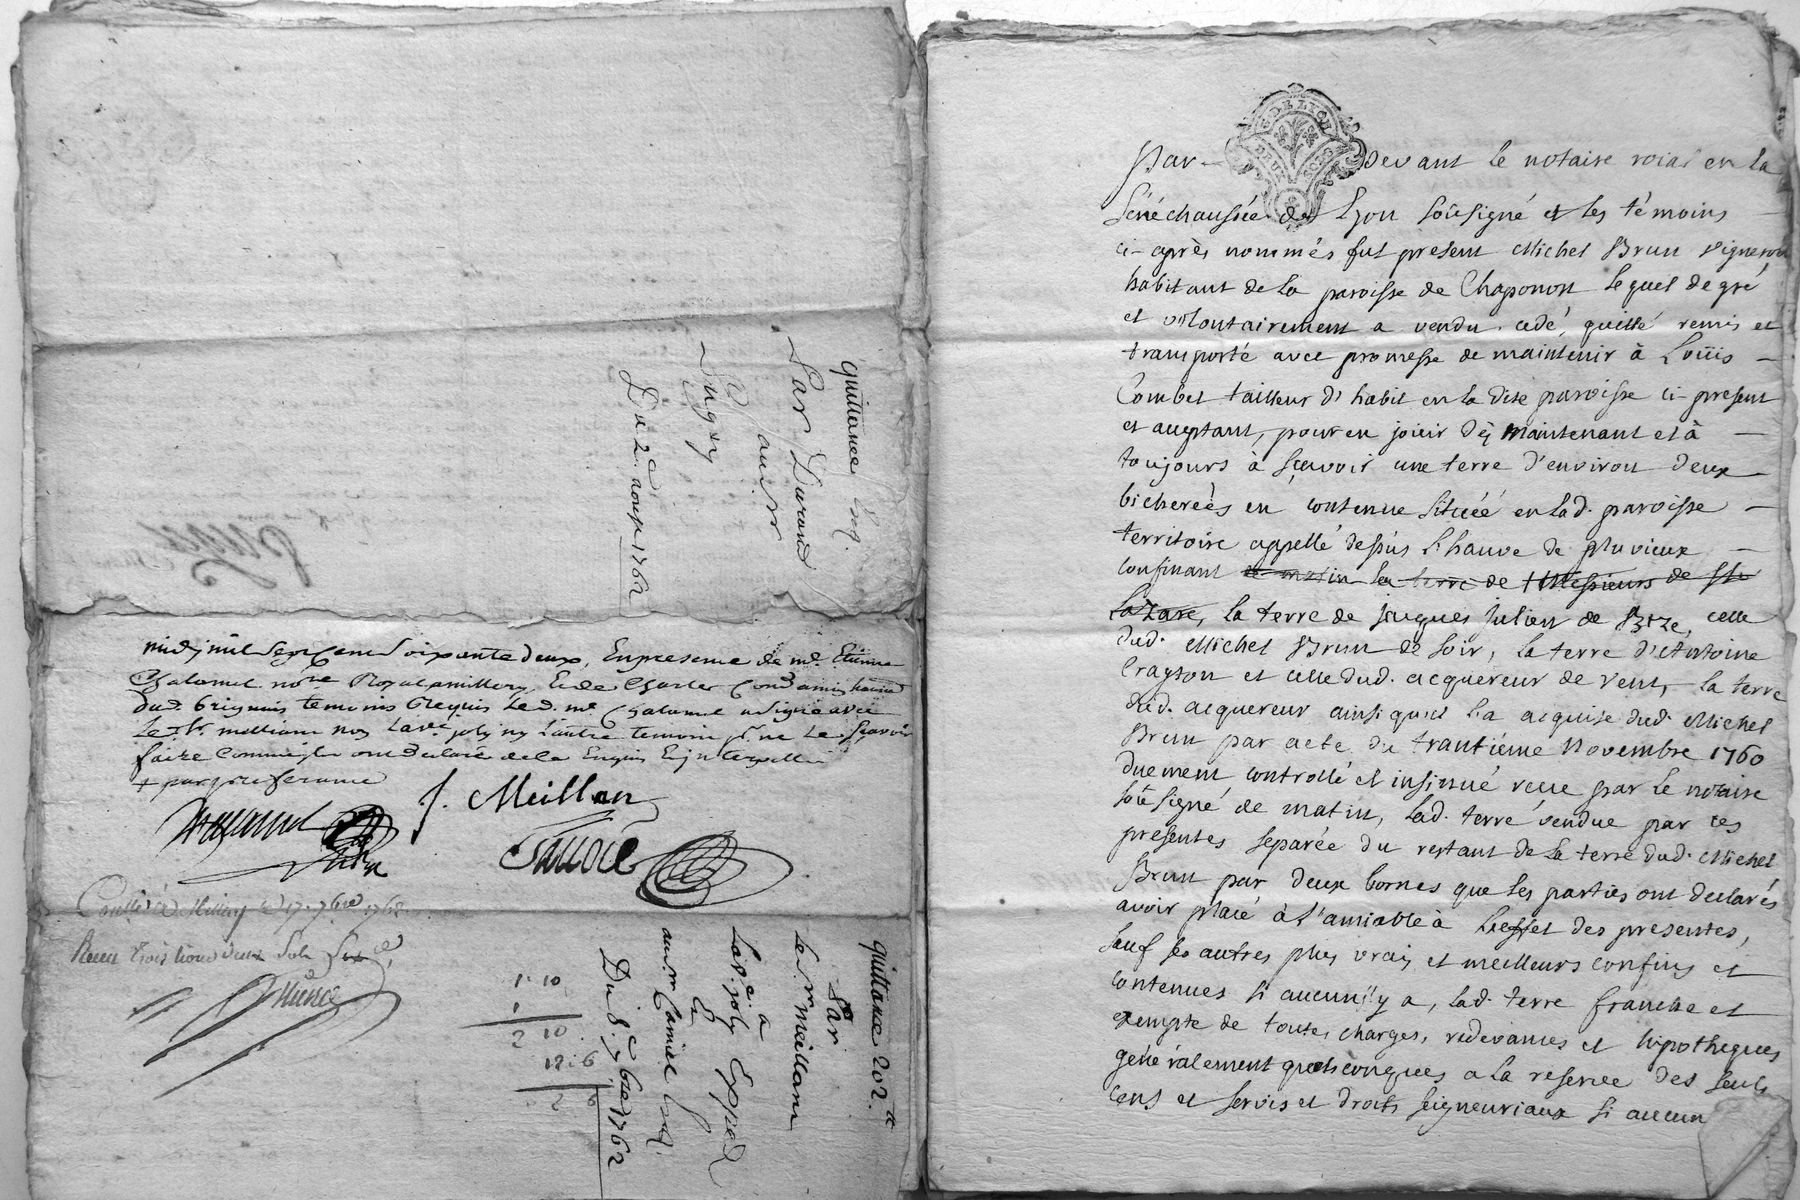 quittance
Par Durand
Du 2e aoust 1762
midy mil sept cent soixante deux, En presence de me. Etienne
Chalamel nore Royal a millery, Et de Charles
dud Brignais temoins Requis Led. me Chalamel a signé avec
Le sr. meillan non lad. joly ny l'autre temoin pr. ne le sçavoir
faire comme ils ont declaré de ce Enquis
J. Meillan
Controllé a Millery le 17. 7bre 1762
Receu trois livres deux sols
quittance 202.te
Par
Le sr. meillan
a
Lad. joly
Du 8e. 7bre 1762
1. 10
1
2 10
12. 6
2 6
G. DE LYON
DEUX SOLS
Par-devant le notaire roial en la
Sénéchaussée de Lyon soûsigné et les témoins
ci-après nommés fut present Michel Brun vigneron
habitant de la paroisse de Chaponon lequel de gré
et volontairement a vendu cedé, quitté remis et
transporté avec promesse de maintenir à Loüis
Combet tailleur d'habit en la dite paroisse ci-present
et acceptant, pour en joüir dès maintenant et à
toujours à sçavoir une terre d'environ deux
bicherées en contenue située en lad. paroisse
territoire appellé dessus l'hauve de pluvieux
confinant le matin la terre de Messieurs de St
Lazare, la terre de jacques julien de bize, celle
dud. Michel Brun de soir, la terre d'Antoine
Cragson et celle dud. acquereur de vent, la terre
dud. acquereur ainsi qu'il l'a acquise dud. Michel
Brun par acte du trantiéme Novembre 1760
duement controllé et insinué reçue par le notaire
soûsigné de matin, lad. terre vendue par ces
presentes separée du restant de la terre dud. Michel
Brun par deux bornes que les parties ont declarés
avoir placé à l'amiable à l'effet des presentes,
sauf les autres plus vrais et meilleurs confins et
contenues si aucun y a, lad. terre franche et
exempte de toutes charges, redevances et hipotheques
généralement quelconques a la reserve des seuls
cens et servis et droits seigneuriaux si aucun